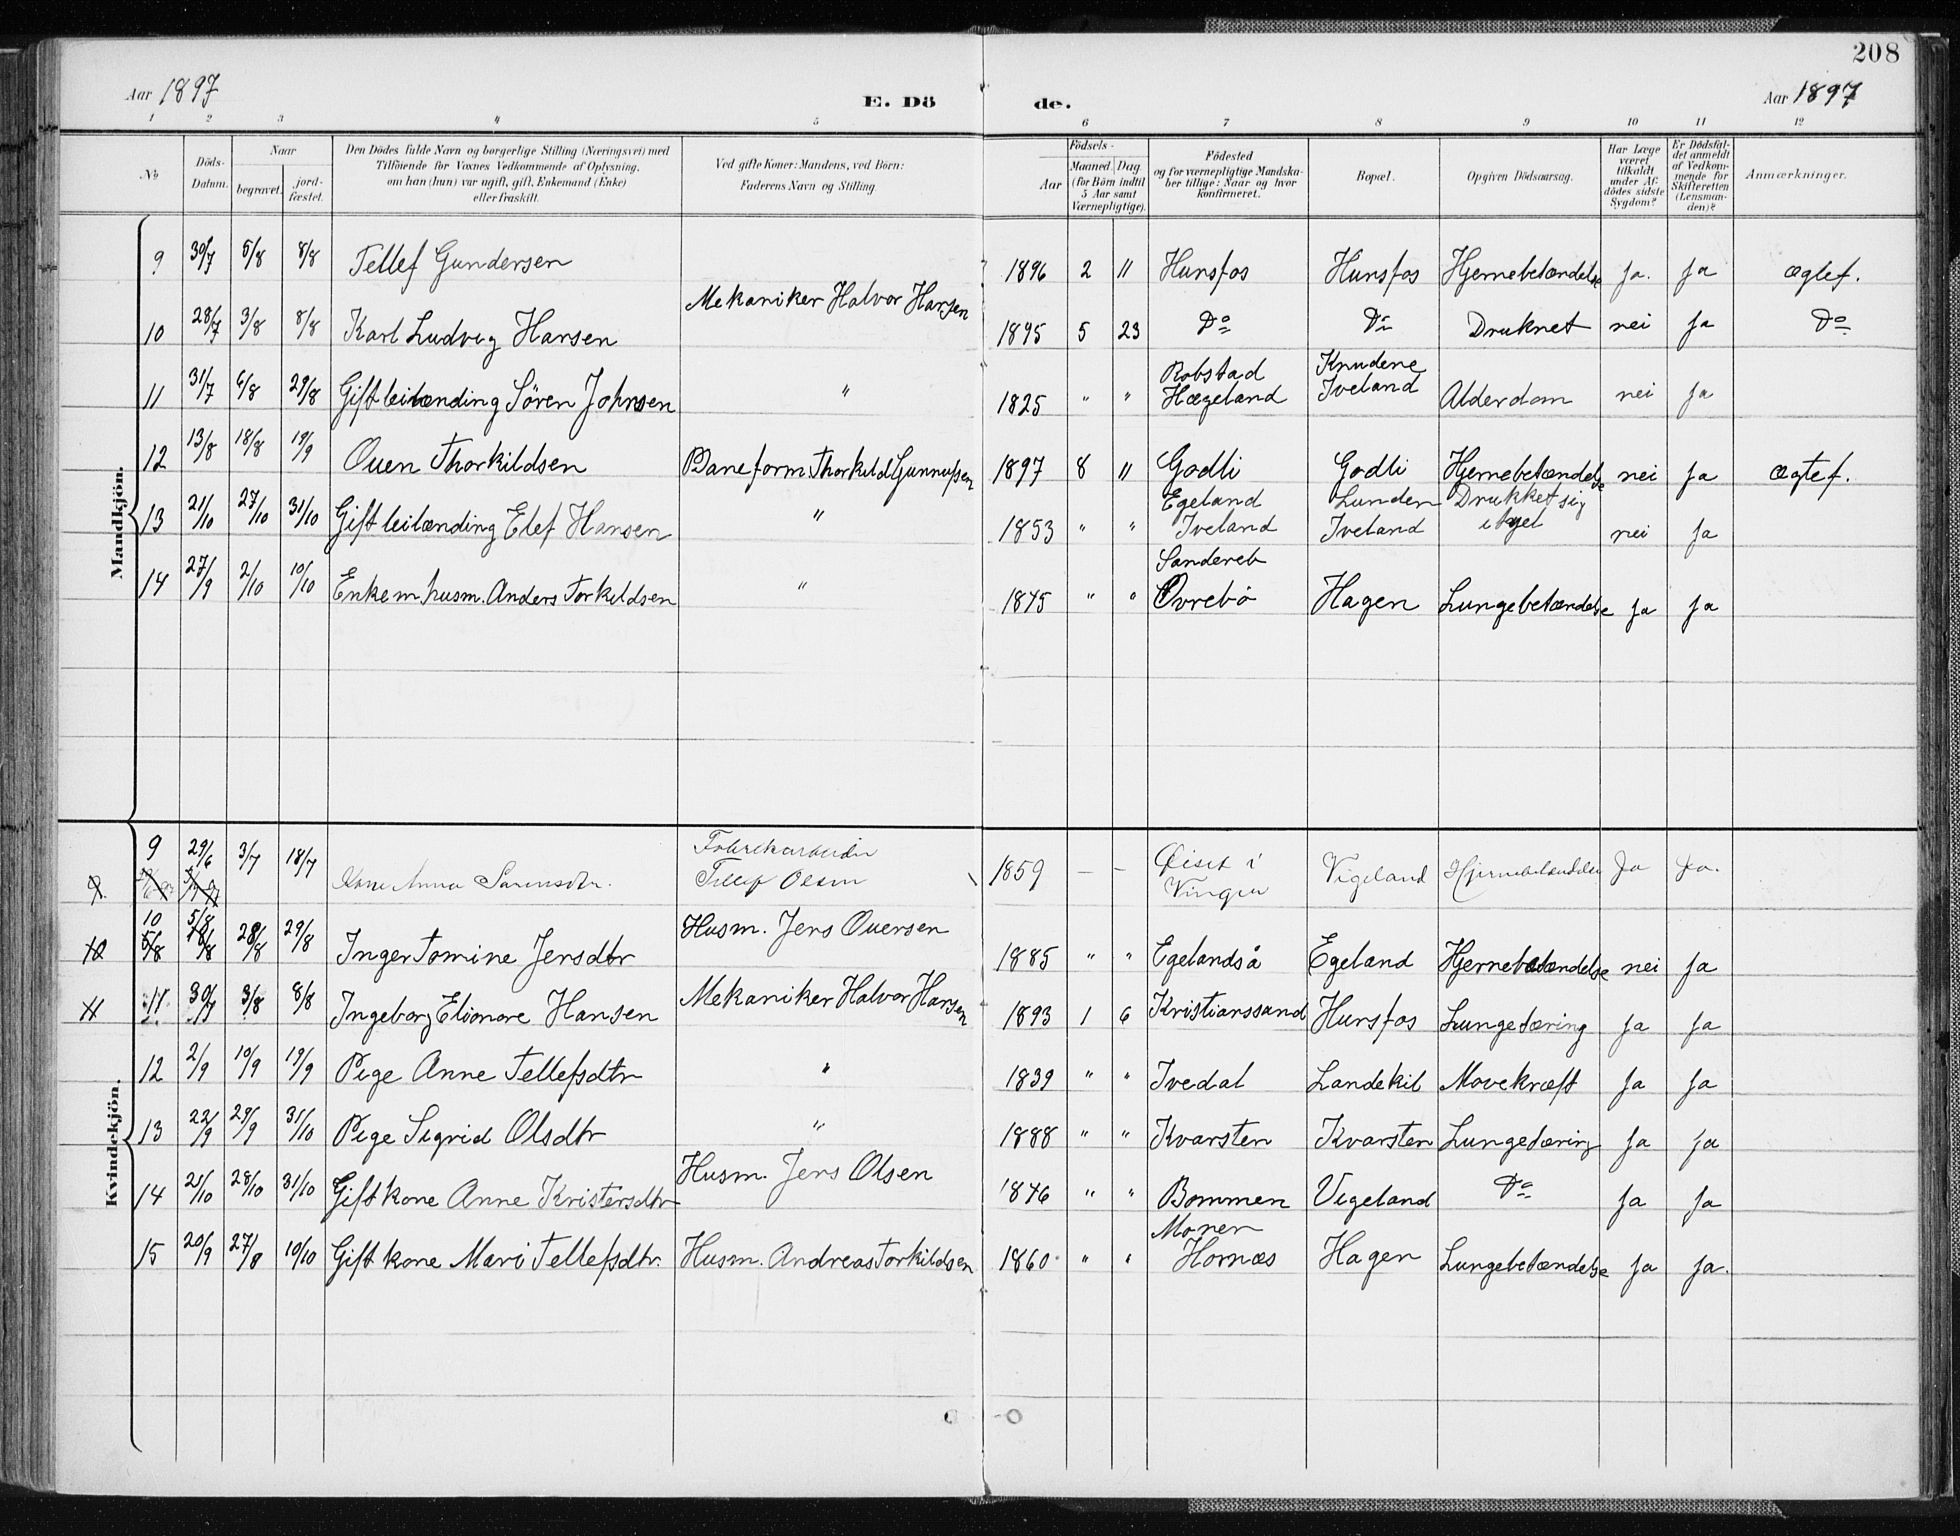 208
Aar 1897
E. Dö
de.
Aar 1897
1 2 3 4 5 6 7 8 9 10 11 12
No
Döds-Datum.
Naar
begravet.
jord-fæstet.
Den Dödes fulde Navn og borgerlige Stilling (Næringsvei) med
Tilföiende for Voxnes Vedkommende af Oplysning,
om han (hun) var ugift, gift, Enkemand (Enke)
eller fraskilt.
Ved gifte Koner: Mandens, ved Börn:
Faderens Navn og Stilling.
Födsels-
Aar
Maaned. Dag.
(for Börn indtil
5 Aar samt
Værnepligtige).
Födested
og for værnepligtige Mandska-
ber tillige: Naar og hvor
konfirmeret.
Bopæl.
Opgiven Dödsaarsag.
Har Læge
været
tilkaldt
under Af-
dödes sidste
Sygdom?
Er Dödsfal-
det anmeldt
af Vedkom-
mende for
Skifteretten
(Lensman-
den)?
Anmærkninger.
Mandkjön.
9 30/7 5/8 8/8 Tellef Gundersen 1896 2 11 Hunsfos Hunsfos Hjernebetændelse Ja. Ja ægtef.
Mekaniker Halvor Hansen
10 28/7 3/8 8/8 Karl Ludvig Hansen 1895 5 23 Do Do Druknet nei Ja Do
Robstad Knudene
11 31/7 6/8 29/8 Gift leilænding Sören Johnsen " 1825 " " Hægeland Iveland Alderdom nei Ja
12 13/8 18/8 19/9 Ouen Thorkildsen Baneform. Thorkild Gunnufsen 1897 8 11 Godli Godli Hjernebetændelse nei Ja ægtef.
Egeland Lunden Drukket sig
13 21/10 27/10 31/10 Gift leilænding Elef Hansen " 1853 " " Iveland Iveland ihjel nei Ja
14 27/9 2/10 10/10 Enkem. husm. Anders Torkildsen " 1845 " " Øvrebö Hagen Lungebetændelse Ja Ja
Kvindekjön.
Fabrikarbeider
9 29/6 3/7 18/7 Kone Anna Sørensdtr. Tellef Olsen 1859 - - Vigeland Hjernebetændelse Ja Ja.
9
Husm. Jens Ouersen
10 10 5/8 28/8 29/8 Inger Tomine Jensdtr 1885 " " Egelandså Egeland Hjernebetændelse nei Ja
Mekaniker Halvor Hansen
11 11 30/7 3/8 8/8 Ingeborg Elionore Hansen 1893 1 6 Kristianssand Hunsfos Lungetæring Ja Ja
12 2/9 10/9 19/9 Pige Anne Tellefsdtr " 1839 " " Ivedal Landekil Mavekræft Ja Ja
13 22/9 29/9 31/10 Pige Sigrid Olsdtr " 1888 " " Kvarsten Kvarsten Lungetæring Ja Ja
Husm. Jens Olsen
14 21/10 28/10 31/10 Gift kone Anne Kristensdtr 1846 " " Bommen Vigeland Do Ja Ja
Monen
15 20/9 27/8 10/10 Gift kone Mari Tellefsdtr. Husm. Andreas Torkildsen 1860 " " Hornæs Hagen Lungebetændelse Ja Ja.